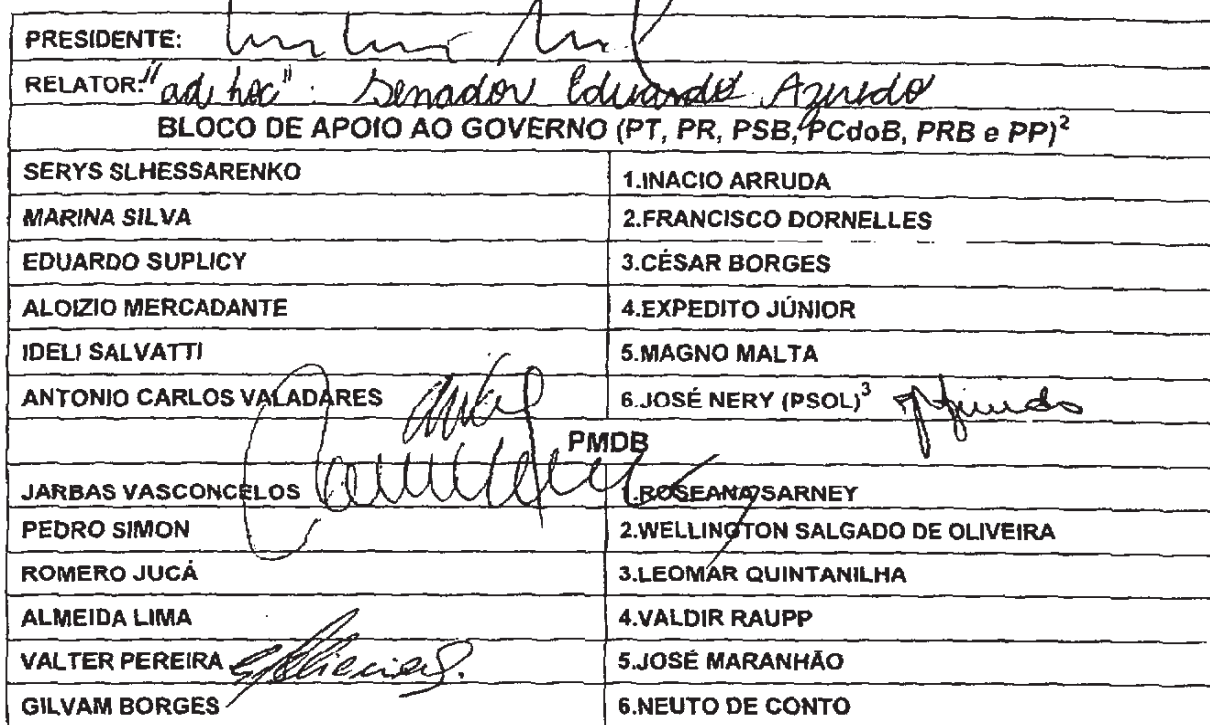 PRESIDENTE:
RELATOR: "ad hoc": Senador Eduardo Azeredo
BLOCO DE APOIO AO GOVERNO (PT, PR, PSB, PCdoB, PRB e PP)²
SERYS SLHESSARENKO 1.INACIO ARRUDA
MARINA SILVA 2.FRANCISCO DORNELLES
EDUARDO SUPLICY 3.CÉSAR BORGES
ALOIZIO MERCADANTE 4.EXPEDITO JÚNIOR
IDELI SALVATTI 5.MAGNO MALTA
ANTONIO CARLOS VALADARES 6.JOSÉ NERY (PSOL)³
PMDB
JARBAS VASCONCELOS 1.ROSEANA SARNEY
PEDRO SIMON 2.WELLINGTON SALGADO DE OLIVEIRA
ROMERO JUCÁ 3.LEOMAR QUINTANILHA
ALMEIDA LIMA 4.VALDIR RAUPP
VALTER PEREIRA 5.JOSÉ MARANHÃO
GILVAM BORGES 6.NEUTO DE CONTO